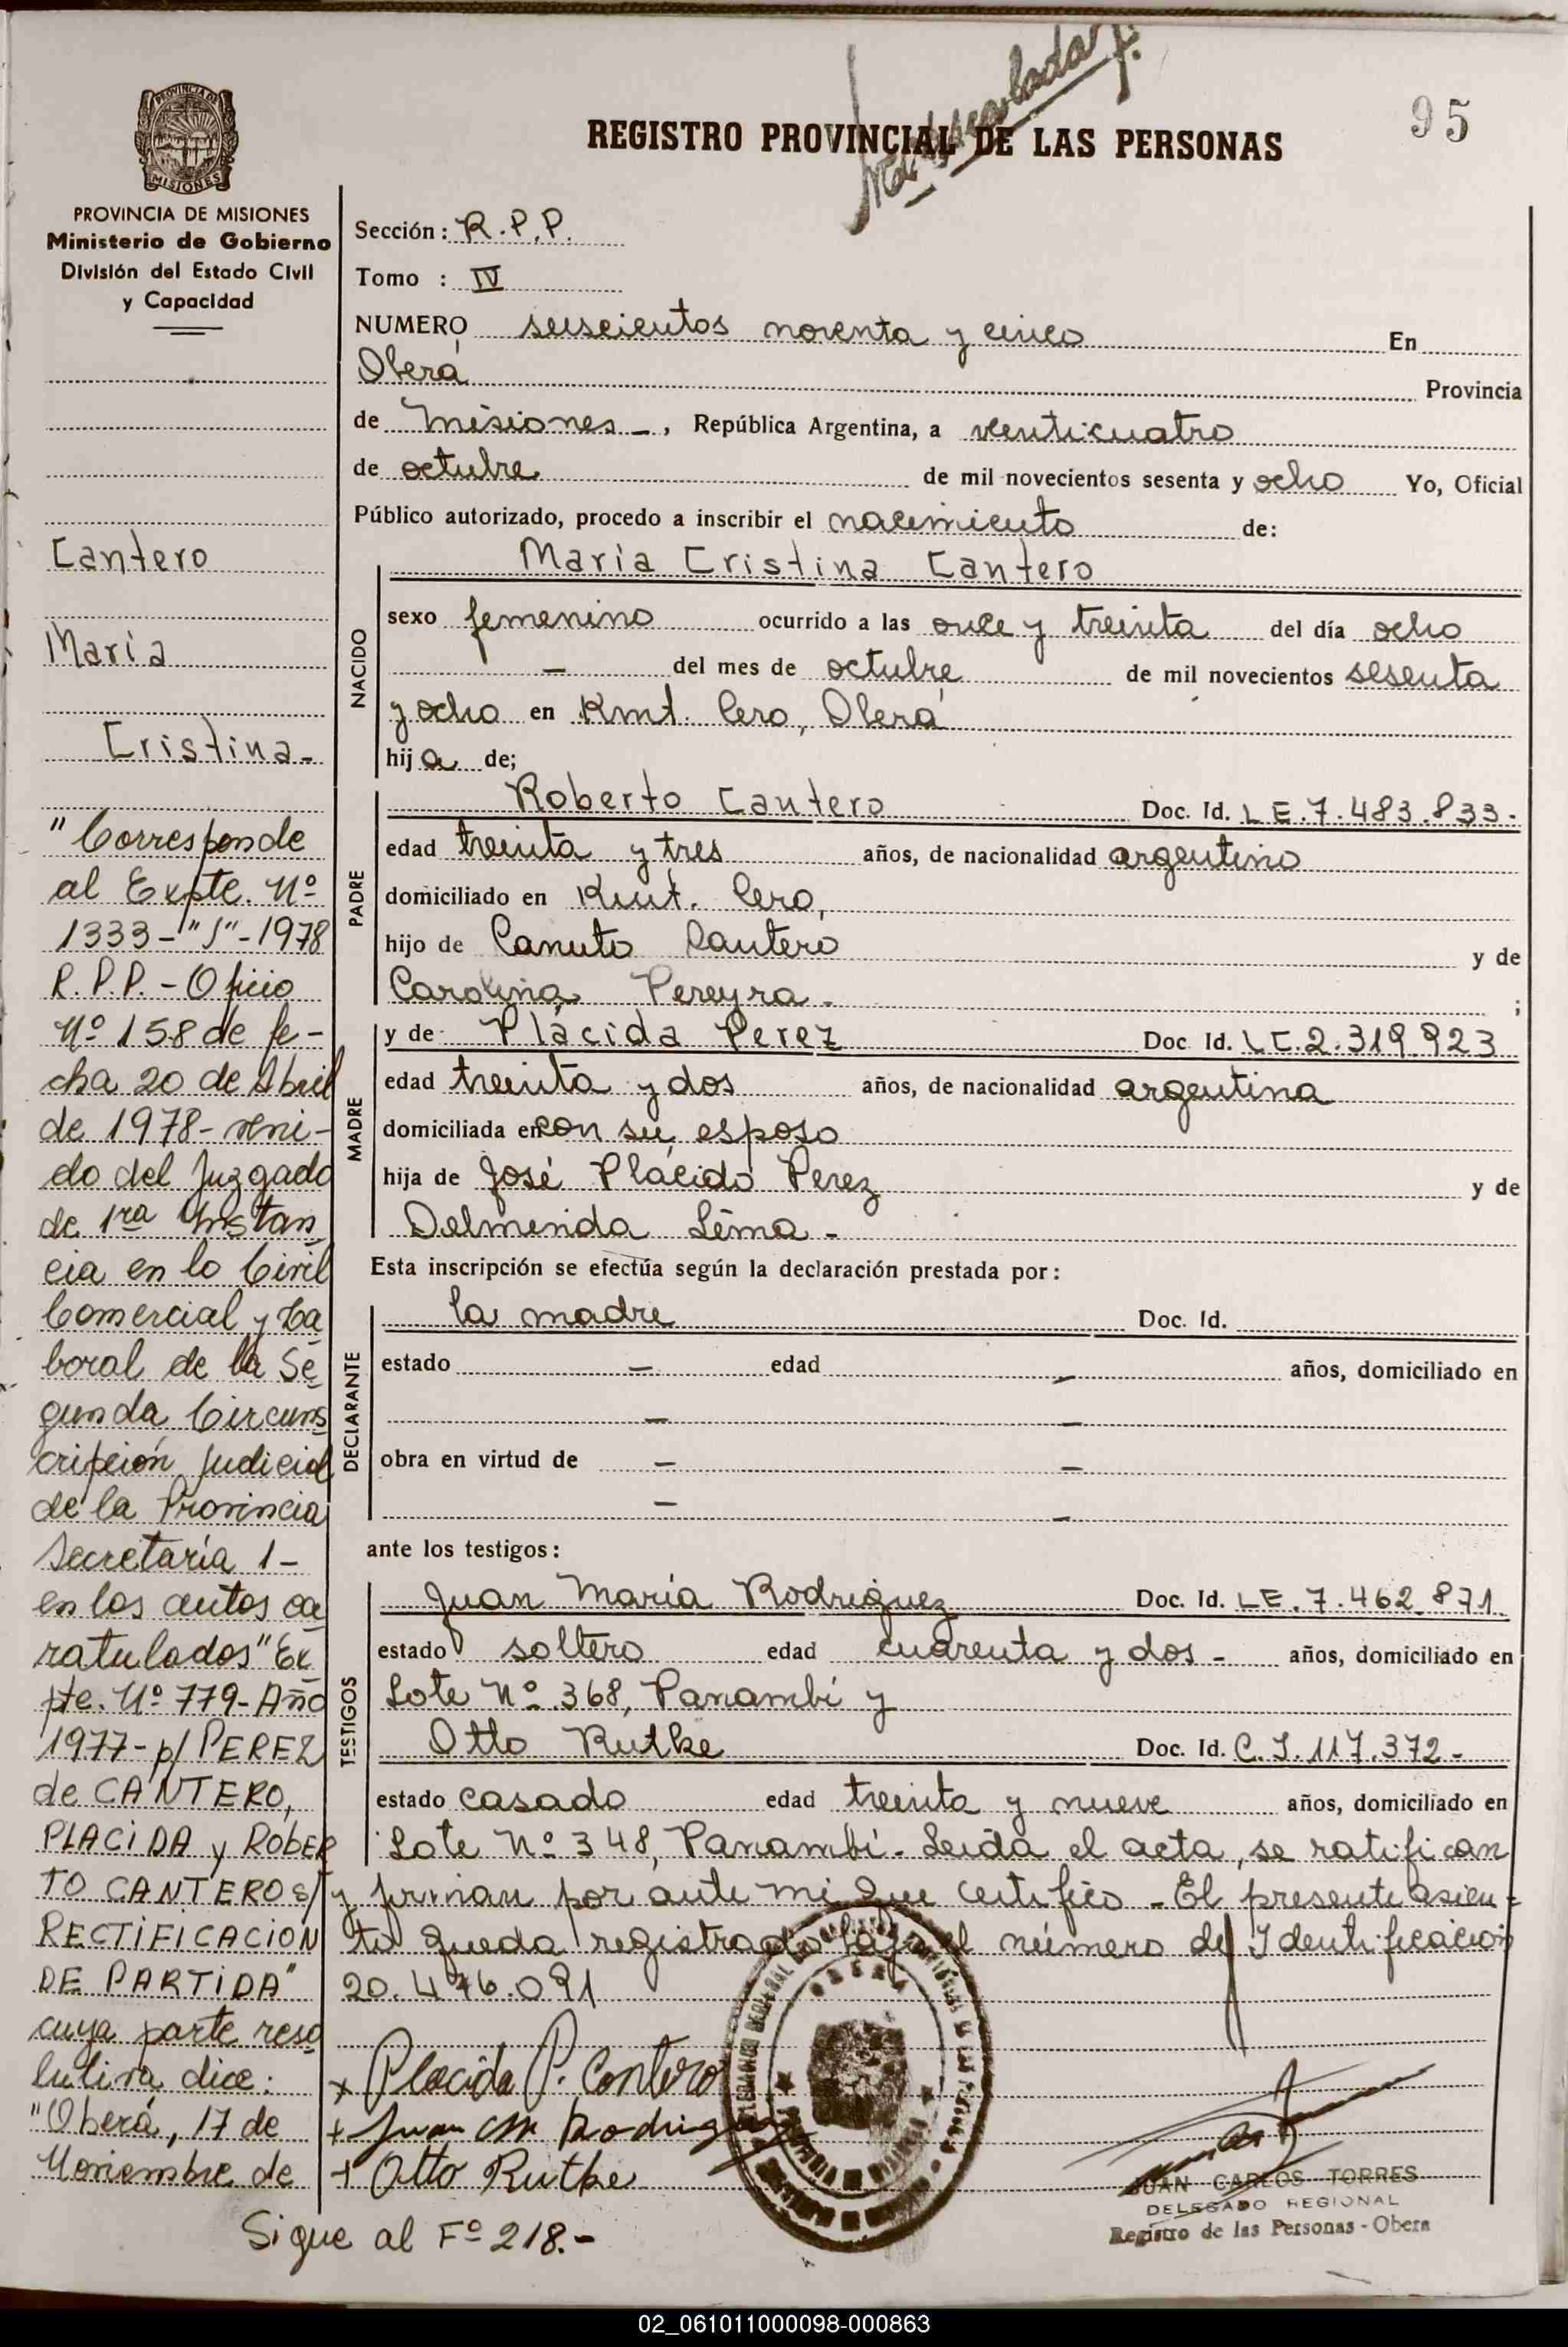 95
REGISTRO PROVINCIAL DE LAS PERSONAS
PROVINCIA DE
MISIONES
PROVINCIA DE MISIONES
Ministerio de Gobierno
División del Estado Civil
y Capacidad
Cantero
María
Cristina-
"Corresponde
al Expte. Nº
1333-"S"-1978
R.P.P. - Oficio
Nº 158 de fe-
cha 20 de Abril
de 1978- veni-
do del Juzgado
de 1ra Instan
cia en lo Civil
Comercial y La
boral de la Se
gunda Circuns
cripción Judicial
de la Provincia
Secretaría 1-
en los autos ca
ratulados "Ex
pte. Nº 779-Año
1977- p/ PEREZ
de CANTERO,
PLACIDA y ROBER
TO CANTERO s/
RECTIFICACION
DE PARTIDA"
cuya parte reso
lutiva dice:
"Oberá, 17 de
Noviembre de
Sección: R.P.P.
Tomo : IV
NUMERO seiscientos noventa y cinco En
Oberá Provincia
de Misiones -, República Argentina, a venticuatro
de octubre de mil novecientos sesenta y ocho Yo, Oficial
Público autorizado, procedo a inscribir el nacimiento de:
NACIDO
María Cristina Cantero
sexo femenino ocurrido a las once y treinta del día ocho
- del mes de octubre de mil novecientos sesenta
y ocho en Kmt. Cero, Oberá
hija de;
PADRE
Roberto Cantero Doc. Id. LE.7.483.833-
edad treinta y tres años, de nacionalidad argentino
domiciliado en Kmt. Cero,
hijo de Canuto Cantero y de
Carolina Pereyra - ;
MADRE
y de Plácida Perez Doc. Id. LC.2.319.923
edad treinta y dos años, de nacionalidad argentina
domiciliada en con su esposo
hija de José Plácido Perez y de
Delmenda Lima -
Esta inscripción se efectúa según la declaración prestada por:
DECLARANTE
la madre Doc. Id.
estado - edad - años, domiciliado en
- -
obra en virtud de - -
- -
ante los testigos:
TESTIGOS
Juan María Rodriguez Doc. Id. LE.7.462.871
estado soltero edad cuarenta y dos - años, domiciliado en
Lote Nº 368, Panambí y
Otto Rutke Doc. Id. C.I.117.372-
estado casado edad treinta y nueve años, domiciliado en
Lote Nº 348, Panambí- Leida el acta, se ratifican
y firman por ante mi que certifico - El presente asien-
to queda registrado bajo el número de Identificación
20.476.091
x Placida P. Cantero
+ Juan M Rodriguez
+ Otto Rutke
OBERA
JUAN CARLOS TORRES
DELEGADO REGIONAL
Registro de las Personas - Obera
Sigue al Fº 218.-
02_061011000098-000863